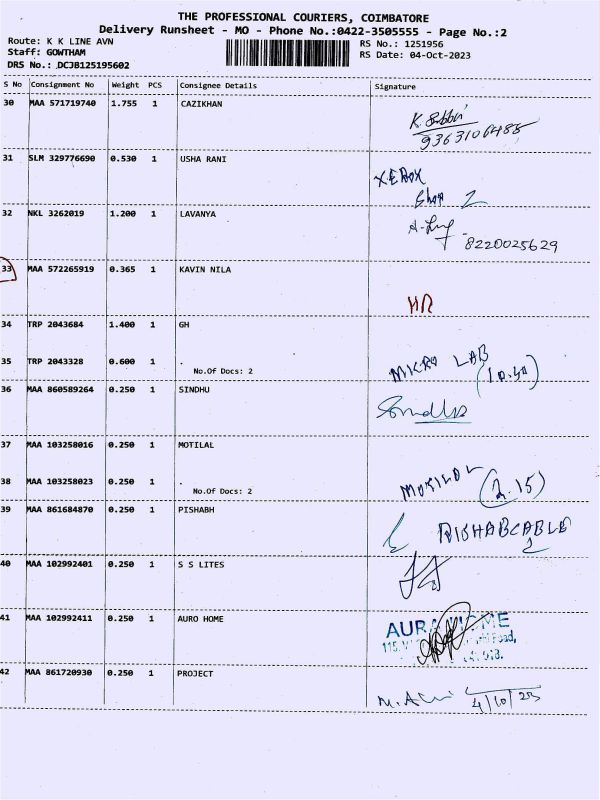 THE PROFESSIONAL COURIERS, COIMBATORE
Delivery Runsheet - MO - Phone No.:0422-3505555 - Page No.:2
Route: K K LINE AVN
RS No.: 1251956
Staff: GOWTHAM
RS Date: 04-Oct-2023
DRS No.: DCJB125195602
S No Consignment No Weight PCS Consignee Details Signature
30 MAA 571719740 1.755 1 CAZIKHAN
9363106488
31 SLM 329776690 0.530 1 USHA RANI
XEROX
Shop
32 NKL 3262019 1.200 1 LAVANYA
8220025629
33 MAA 572265919 0.365 1 KAVIN NILA
34 TRP 2043684 1.400 1 GH
35 TRP 2043328 0.600 1 .
No.Of Docs: 2
MICRO LAB
(10.40)
36 MAA 860589264 0.250 1 SINDHU
37 MAA 103258016 0.250 1 MOTILAL
38 MAA 103258023 0.250 1 .
No.Of Docs: 2
MOTILOL (2.15)
39 MAA 861684870 0.250 1 PISHABH
RISHABCABLE
40 MAA 102992401 0.250 1 S S LITES
41 MAA 102992411 0.250 1 AURO HOME
AURA HOME
42 MAA 861720930 0.250 1 PROJECT
4/10/23